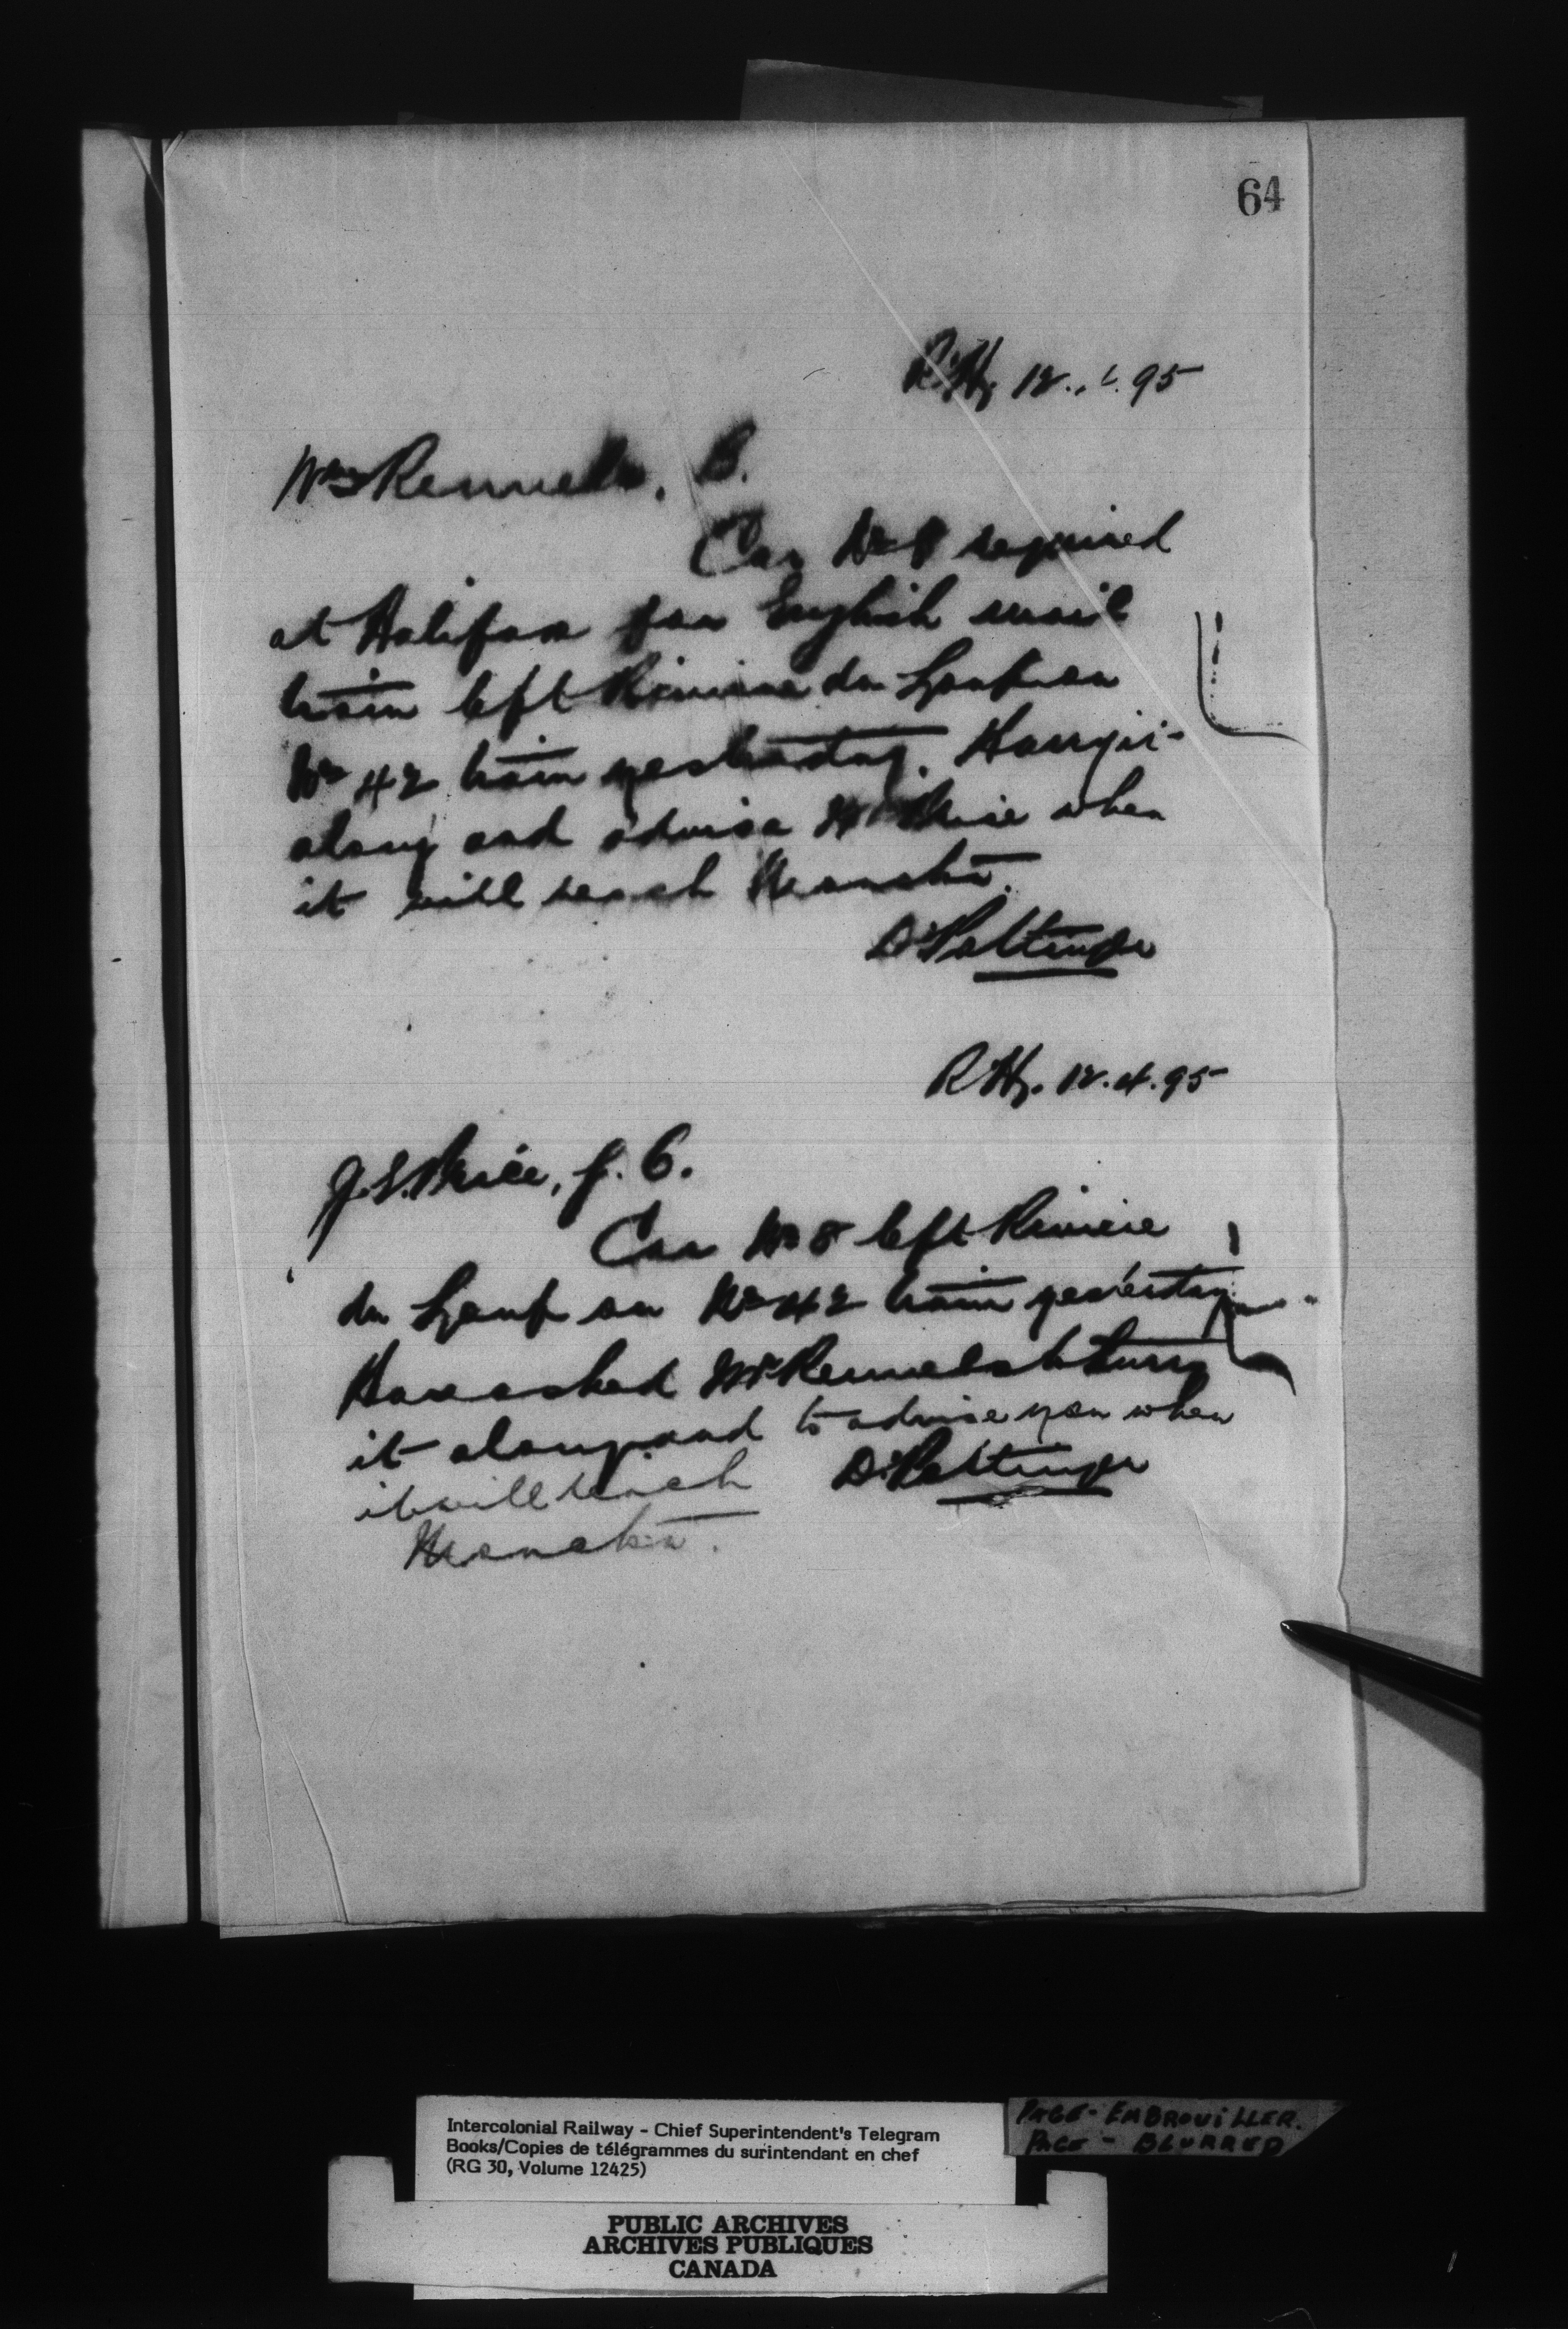 64
RHy 12. 4. 95
Wm Rennels, B.
Car No 8 required
at Halifax for English mail
train left Riviere du Loup on
No 42 train yesterday. Hurry it
along and advise Mr Price when
it will reach Moncton.
D. Pottinger
RHy. 12. 4. 95
J.E. Price, J. C.
Car No 8 left Riviere
du Loup on No 42 train yesterday
Have asked Mr Rennels to hurry
it along and to advise you when
it will reach D. Pottinger
Moncton.
Intercolonial Railway - Chief Superintendent's Telegram
Books/Copies de télégrammes du surintendant en chef
(RG 30, Volume 12425)
PAGE - EMBROUILLER.
PAGE - BLURRED
PUBLIC ARCHIVES
ARCHIVES PUBLIQUES
CANADA